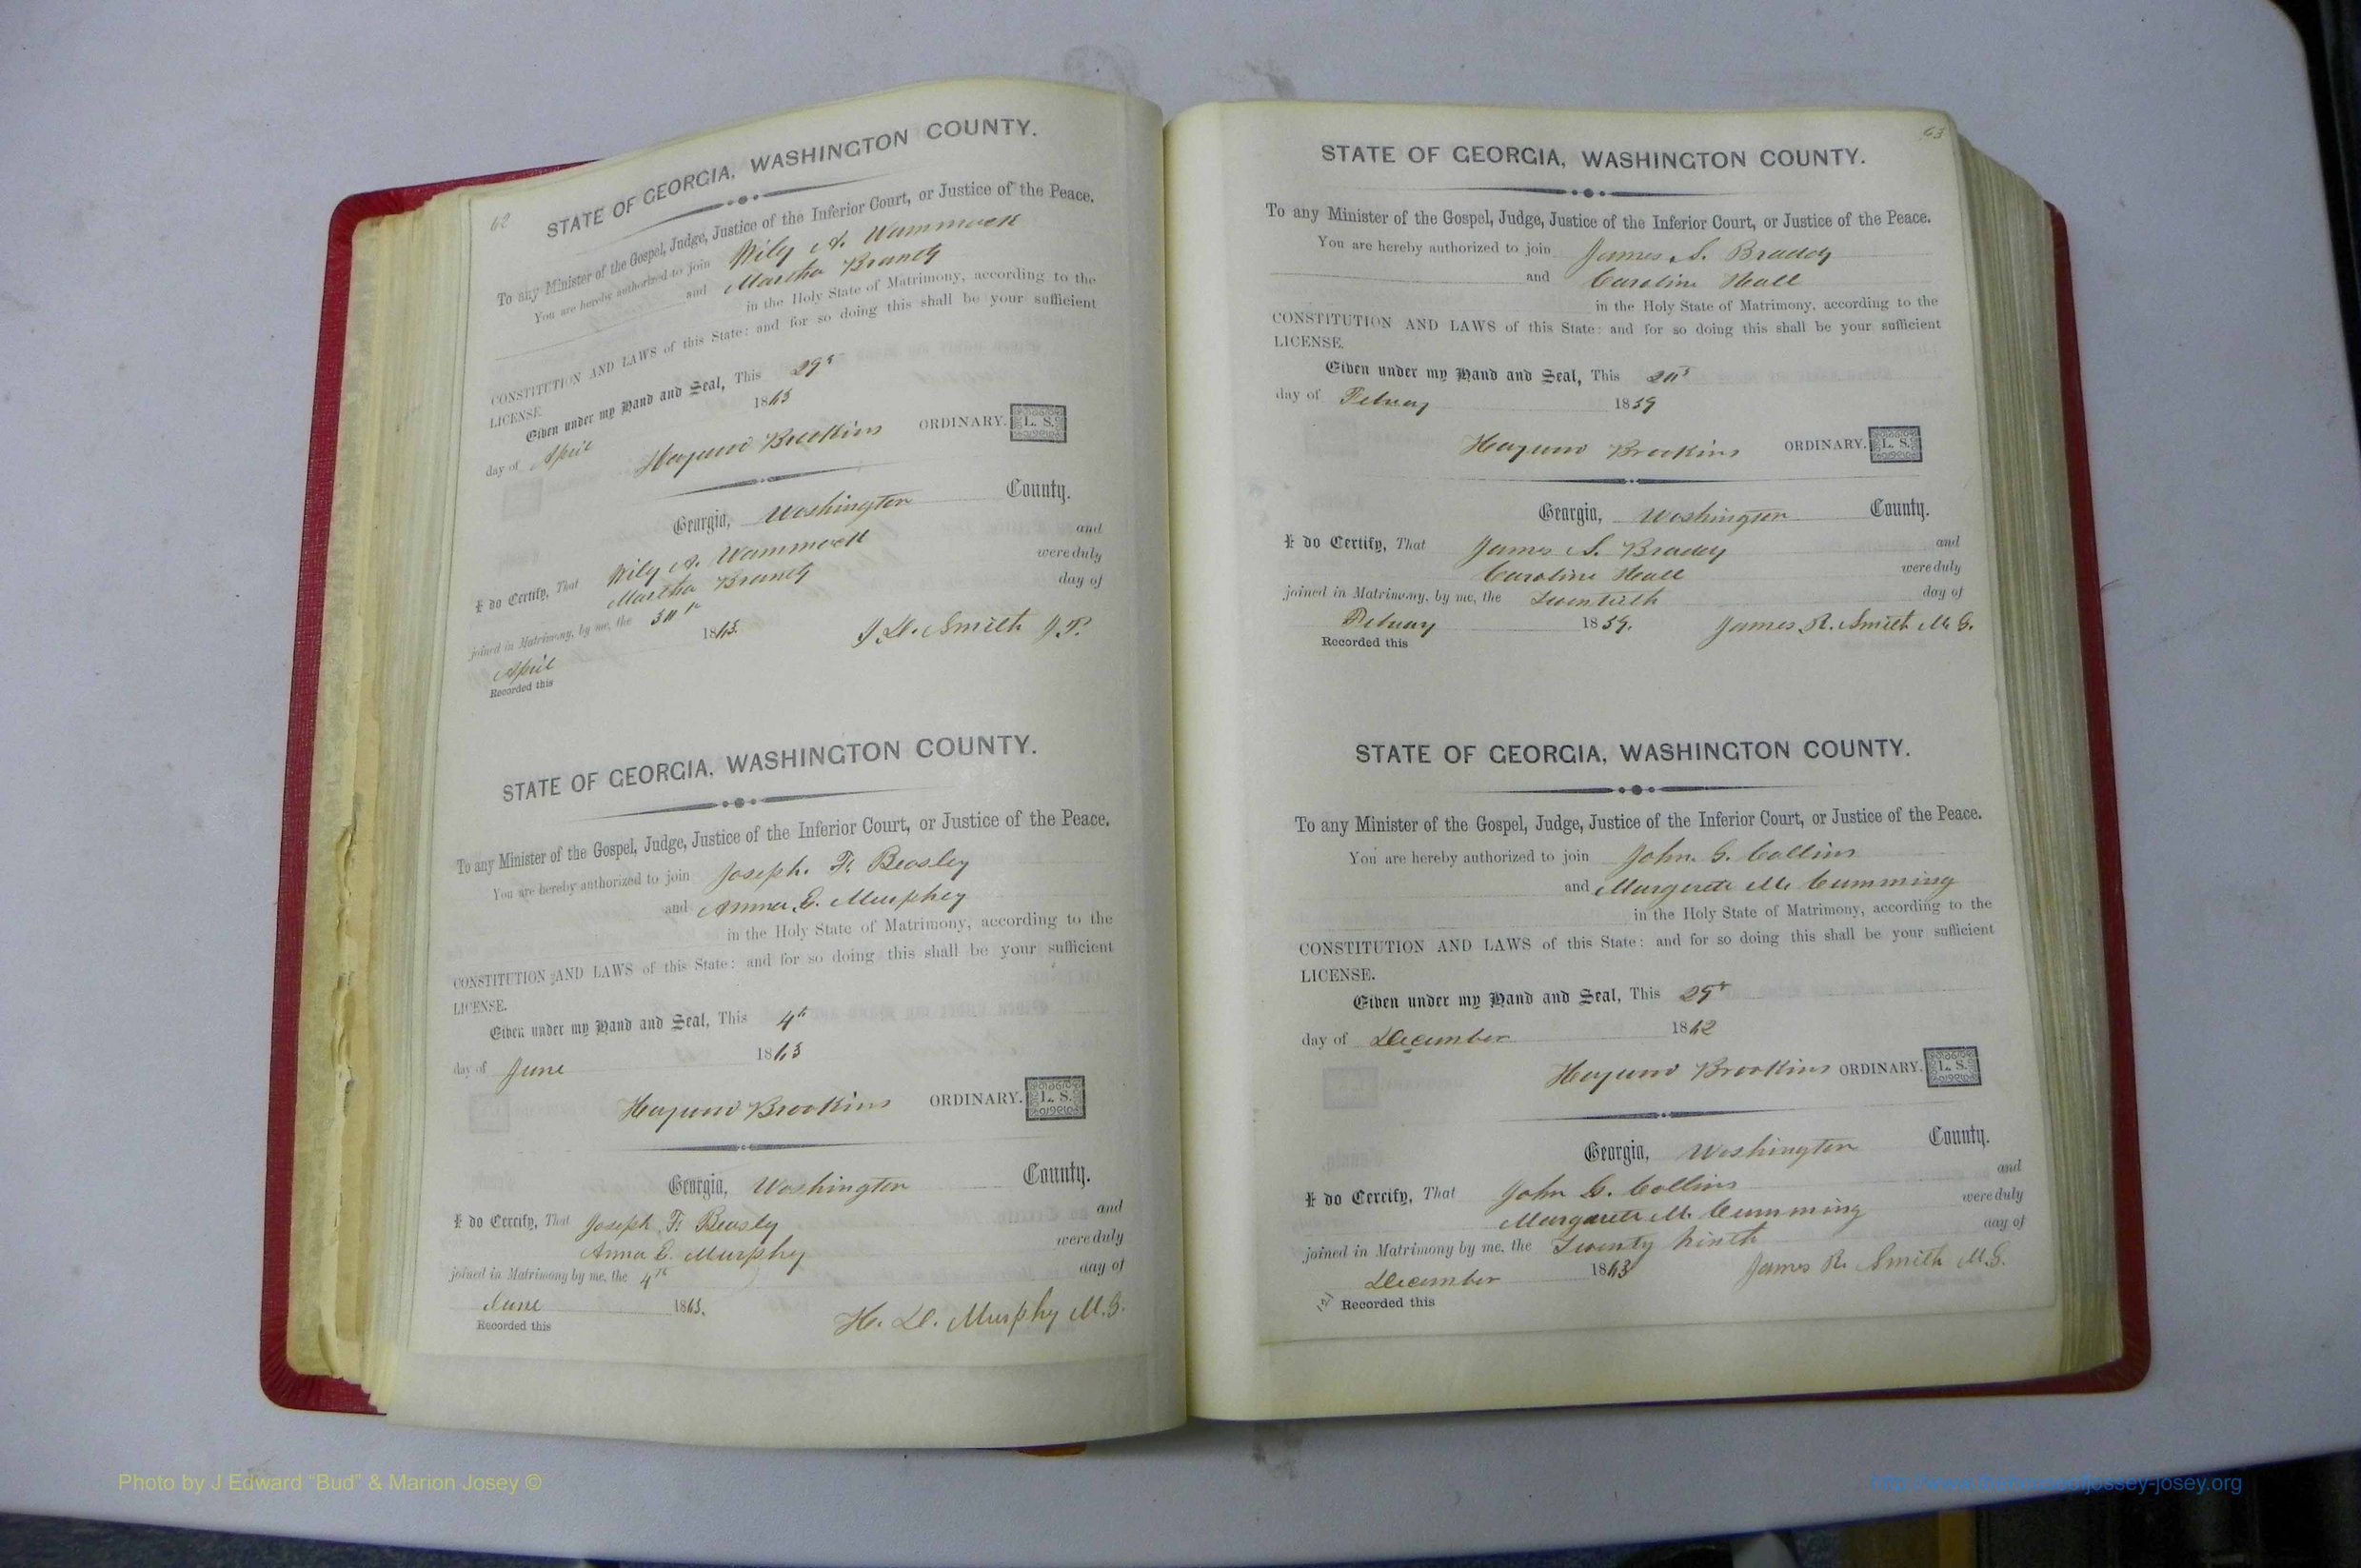 62
STATE OF GEORGIA, WASHINGTON COUNTY.
To any Minister of the Gospel, Judge, Justice of the Inferior Court, or Justice of the Peace.
You are hereby authorized to join Wily A. Wammock
and Martha Branty
in the Holy State of Matrimony, according to the
CONSTITUTION AND LAWS of this State: and for so doing this shall be your sufficient
LICENSE.
Given under my Hand and Seal, This 29th
day of April 1863
Haywood Brookins ORDINARY. L. S.
Georgia, Washington County.
I do Certify, That Wily A. Wammock and
Martha Branty were duly
joined in Matrimony, by me, the 30th day of
April 1863. J D. Smith J.P.
Recorded this
STATE OF GEORGIA, WASHINGTON COUNTY.
To any Minister of the Gospel, Judge, Justice of the Inferior Court, or Justice of the Peace.
You are hereby authorized to join Joseph. F. Beasley
and Anna E. Murphey
in the Holy State of Matrimony, according to the
CONSTITUTION AND LAWS of this State: and for so doing this shall be your sufficient
LICENSE.
Given under my Hand and Seal, This 4th
day of June 1863
Haywood Brookins ORDINARY. L. S.
Georgia, Washington County.
I do Cercify, That Joseph F. Beasly and
Anna E. Murphy were duly
joined in Matrimony by me, the 4th day of
June 1863. H. D. Murphy M.G.
Recorded this
63
STATE OF GEORGIA, WASHINGTON COUNTY.
To any Minister of the Gospel, Judge, Justice of the Inferior Court, or Justice of the Peace.
You are hereby authorized to join James S. Braddy
and Caroline Hall
in the Holy State of Matrimony, according to the
CONSTITUTION AND LAWS of this State: and for so doing this shall be your sufficient
LICENSE.
Given under my Hand and Seal, This 20th
day of Febuay 1859
Haywood Brookins ORDINARY. L. S.
Georgia, Washington County.
I do Certify, That James S. Bradey and
Caroline Hall were duly
joined in Matrimony, by me, the Twentieth day of
Febuay 1859. James R. Smith M G.
Recorded this
STATE OF GEORGIA, WASHINGTON COUNTY.
To any Minister of the Gospel, Judge, Justice of the Inferior Court, or Justice of the Peace.
You are hereby authorized to join John. G. Collins
and Margarett M. Cumming
in the Holy State of Matrimony, according to the
CONSTITUTION AND LAWS of this State: and for so doing this shall be your sufficient
LICENSE.
Given under my Hand and Seal, This 29th
day of December 1862
Haywood Brookins ORDINARY. L. S.
Georgia, Washington County.
I do Cercify, That John G. Collins and
Margarett M. Cumming were duly
joined in Matrimony by me, the Twenty Ninth day of
December 1863 James R. Smith M.G.
Recorded this
Photo by J Edward “Bud” & Marion Josey ©